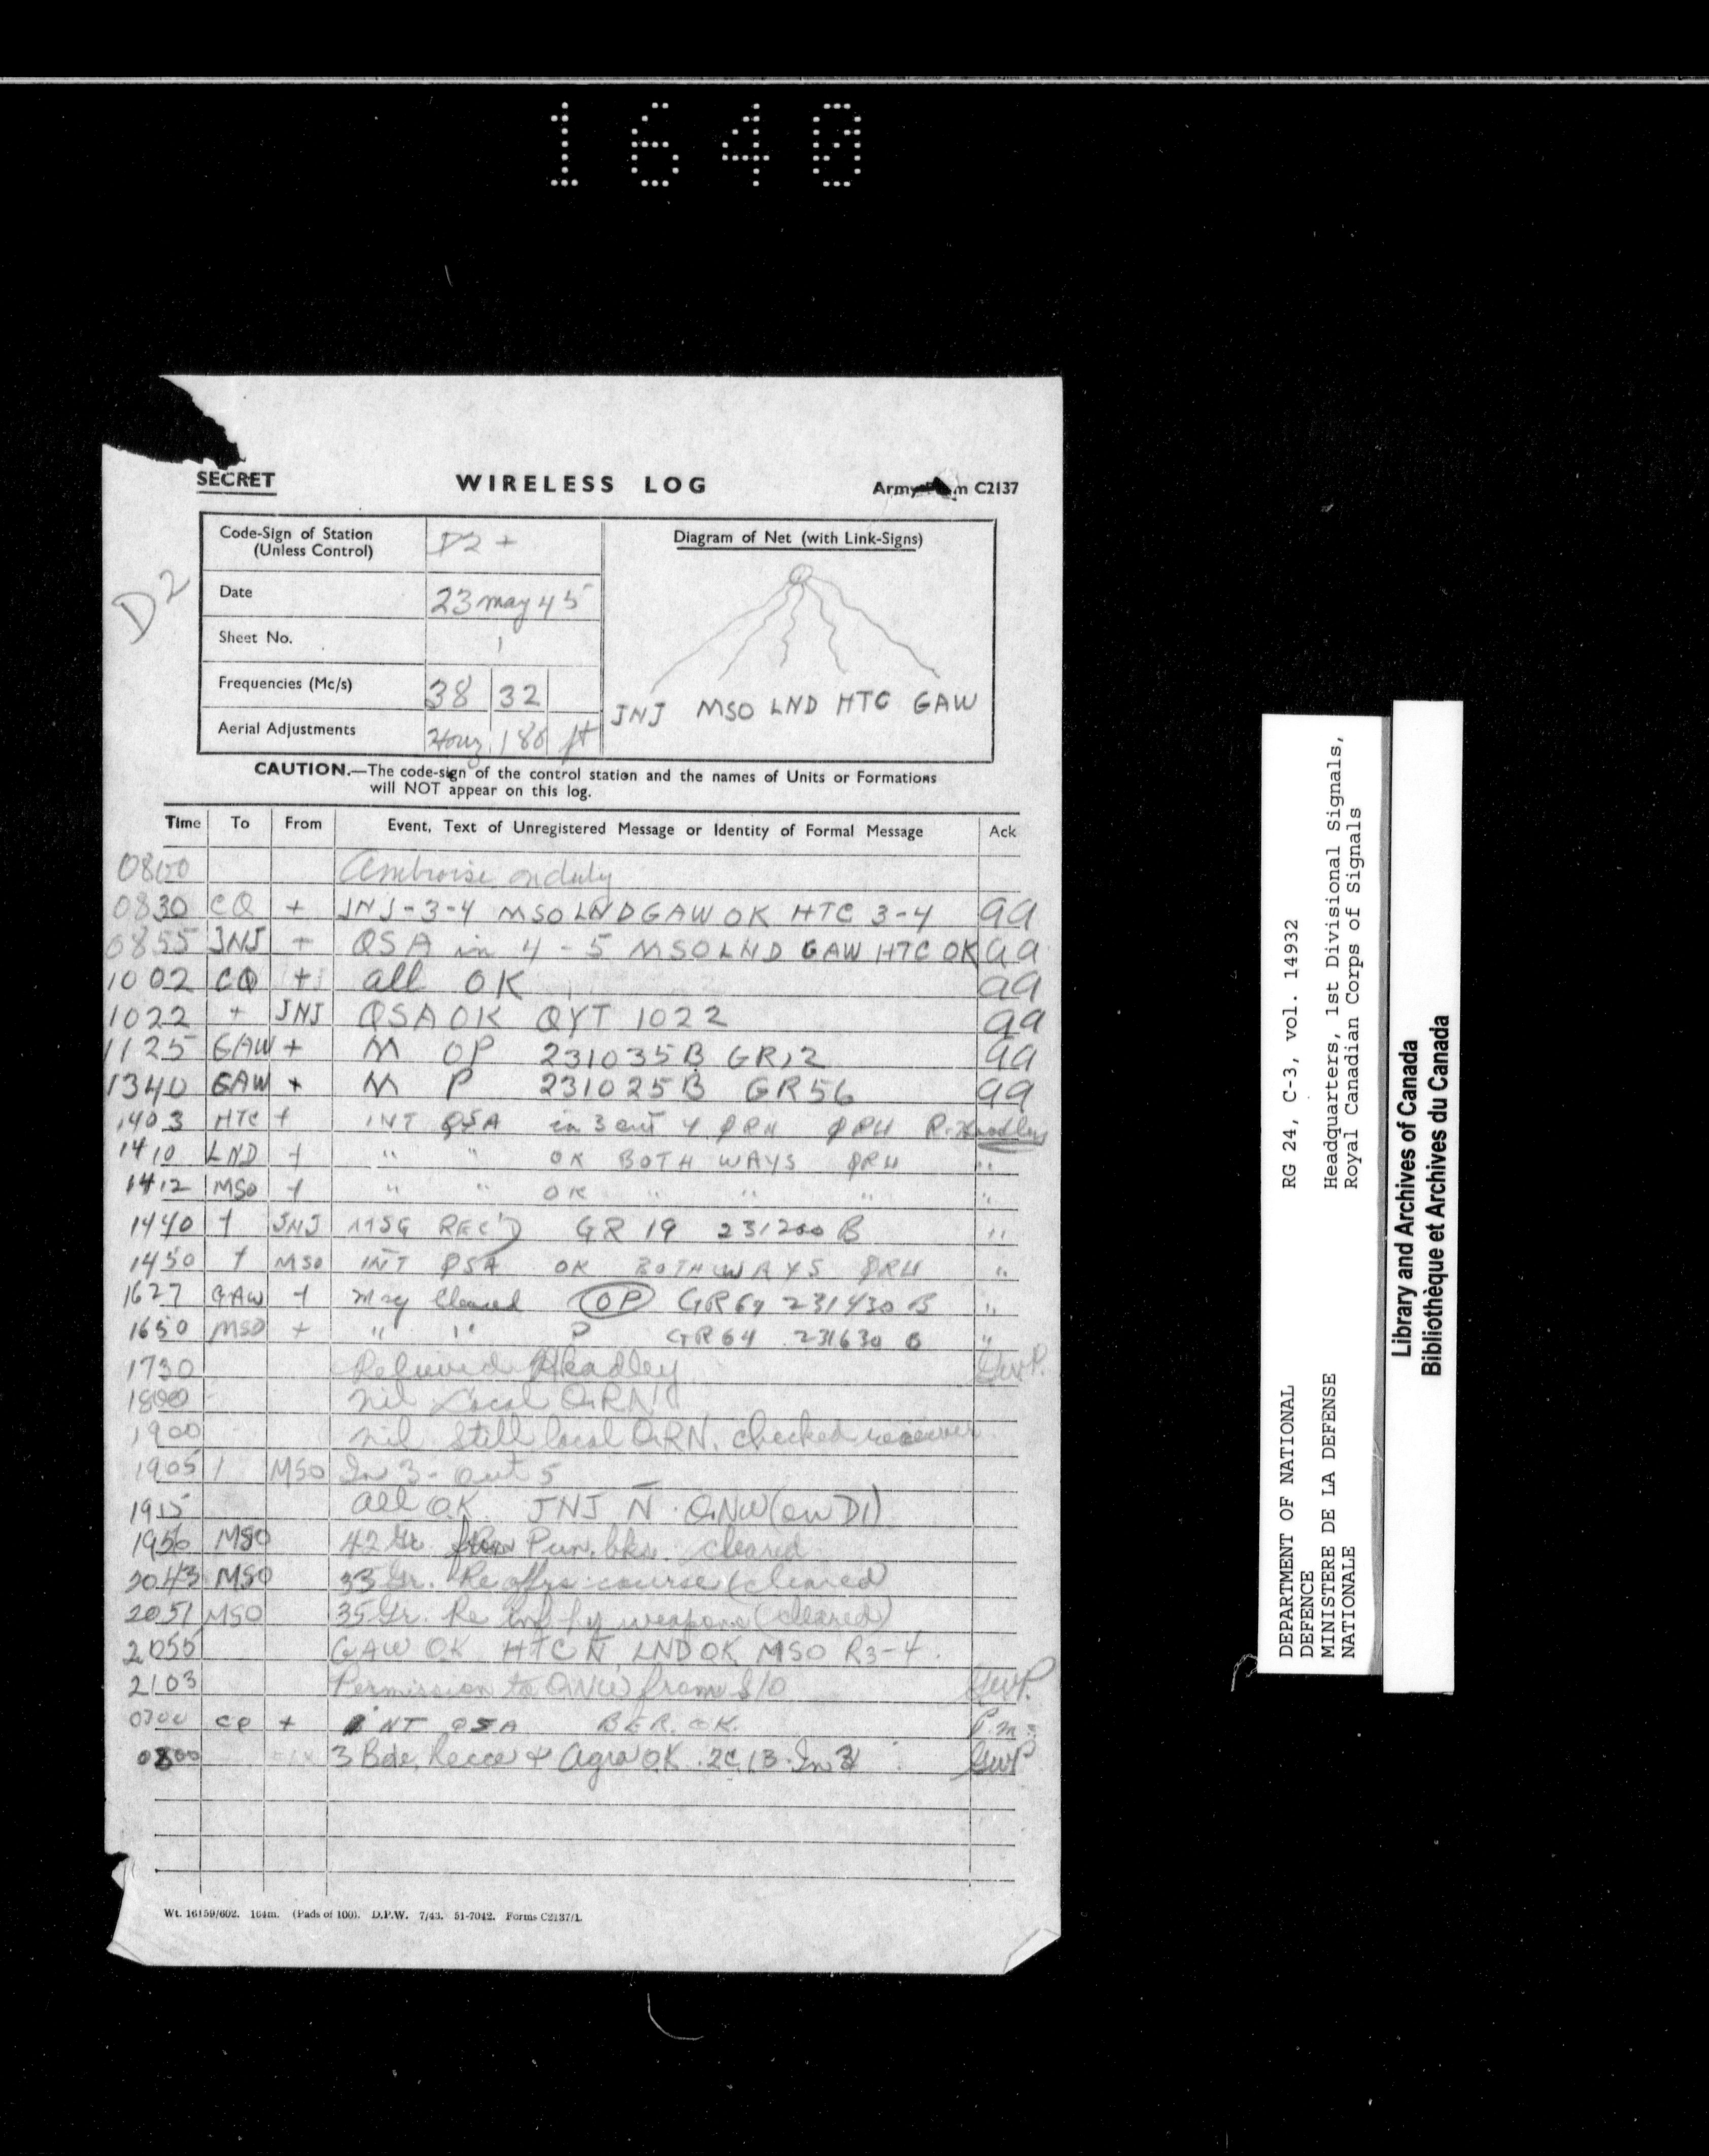 1640
SECRET WIRELESS LOG Army Form C2137
Code-Sign of Station
(Unless Control) D2 +
Diagram of Net (with Link-Signs)
D2
Date 23 may 45
Sheet No. 1
Frequencies (Mc/s) 38 32
JNJ MSO LND HTC GAW
Aerial Adjustments 180 ft
CAUTION.—The code-sign of the control station and the names of Units or Formations
will NOT appear on this log.
Time To From Event, Text of Unregistered Message or Identity of Formal Message Ack
0800 Ambroise on duty
0830 CQ + JNJ-3-4 MSO LND GAW OK HTC 3-4 aa
0855 JNJ + QSA in 4-5 MSO LND GAW HTC OK aa
1002 CQ + all OK aa
1022 + JNJ QSA OK QYT 1022 aa
1125 GAW + M OP 231035B GR12 aa
1340 GAW + M P 231025B GR56 aa
1403 HTC + INT QSA in 3 out 4 QRU QRU
1410 LND + " " OK BOTH WAYS QRU "
1412 MSO + " " OK " " " "
1440 + JNJ MSG REC'D GR 19 231200 B "
1450 + MSO INT QSA OK BOTH WAYS QRU "
1627 GAW + Msg Cleared OP GR 69 231430 B "
1650 MSO + " " P GR 64 231630 B "
1730 Relieved Headley GWP.
1800 nil Local QRN
1900 nil still local QRN. checked receiver
1905 / MSO In 3 - out 5
1915 all OK JNJ N. QNW (on D1)
1956 MSO 42 Gr from Pun. bks. cleared
2043 MSO 33 Gr. Re offrs course (cleared)
2051 MSO 35 Gr. Re inf hy weapons (cleared)
2055 GAW OK HTC N LND OK MSO R3-4.
2103 Permission to QNW from S/O GWP.
0700 CQ + INT QSA BER. OK. P.M.
0800 3 Bde, Recce + Agra OK. 2C, 1B. In 3 GWP
Wt. 16159/602. 164m. (Pads of 100). D.P.W. 7/43. 51-7042. Forms C2137/1.
DEPARTMENT OF NATIONAL
DEFENCE
MINISTERE DE LA DEFENSE
NATIONALE
RG 24, C-3, vol. 14932
Headquarters, 1st Divisional Signals,
Royal Canadian Corps of Signals
Library and Archives of Canada
Bibliothèque et Archives du Canada